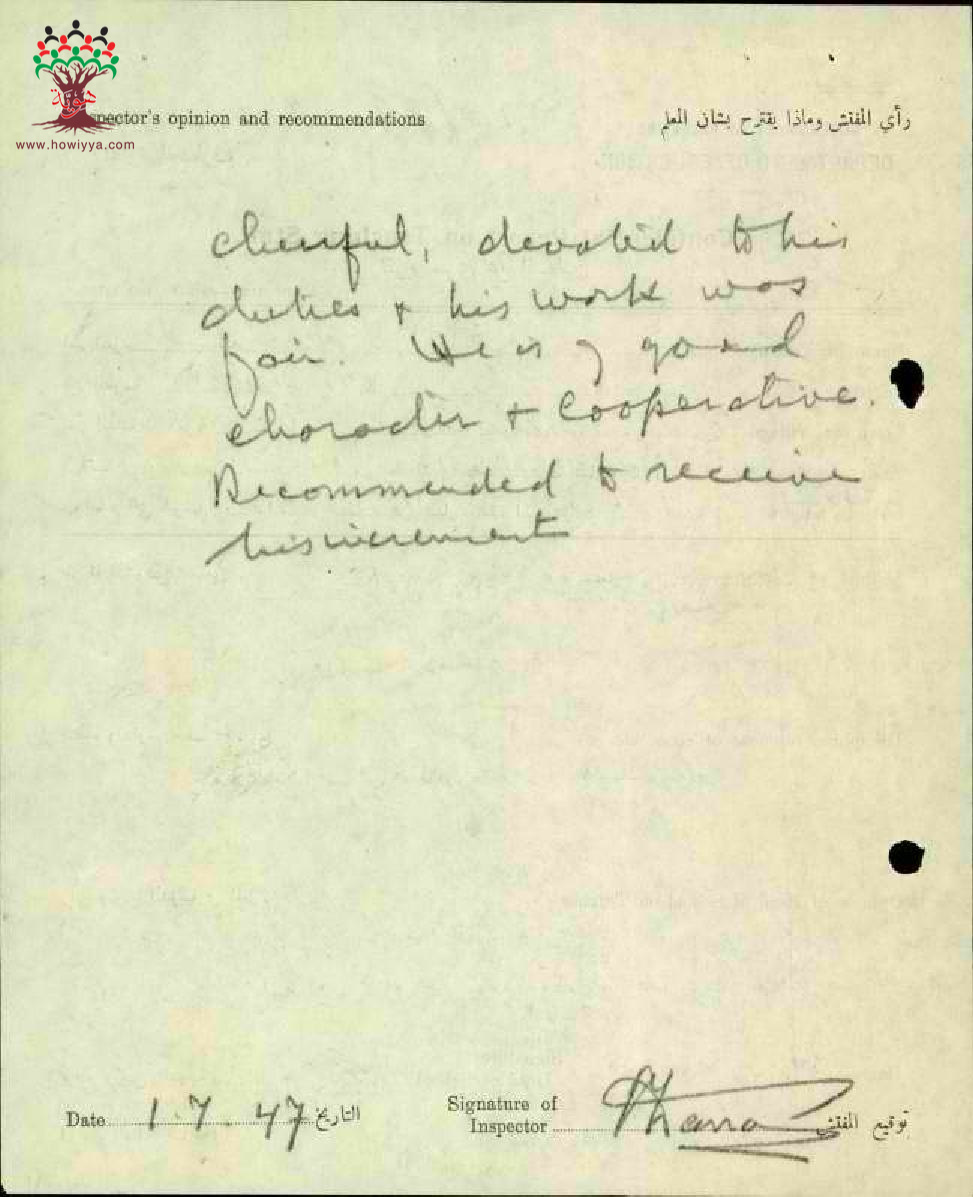 هوية
www.howiyya.com
pector's opinion and recommendations رأي المفتش وماذا يقترح بشان المعلم
cheerful, devoted to his
duties & his work was
fair. He is of good
character & cooperative.
Recommended to receive
his increment
Date 1.7.47 التاريخ
Signature of
Inspector توقيع المفتش